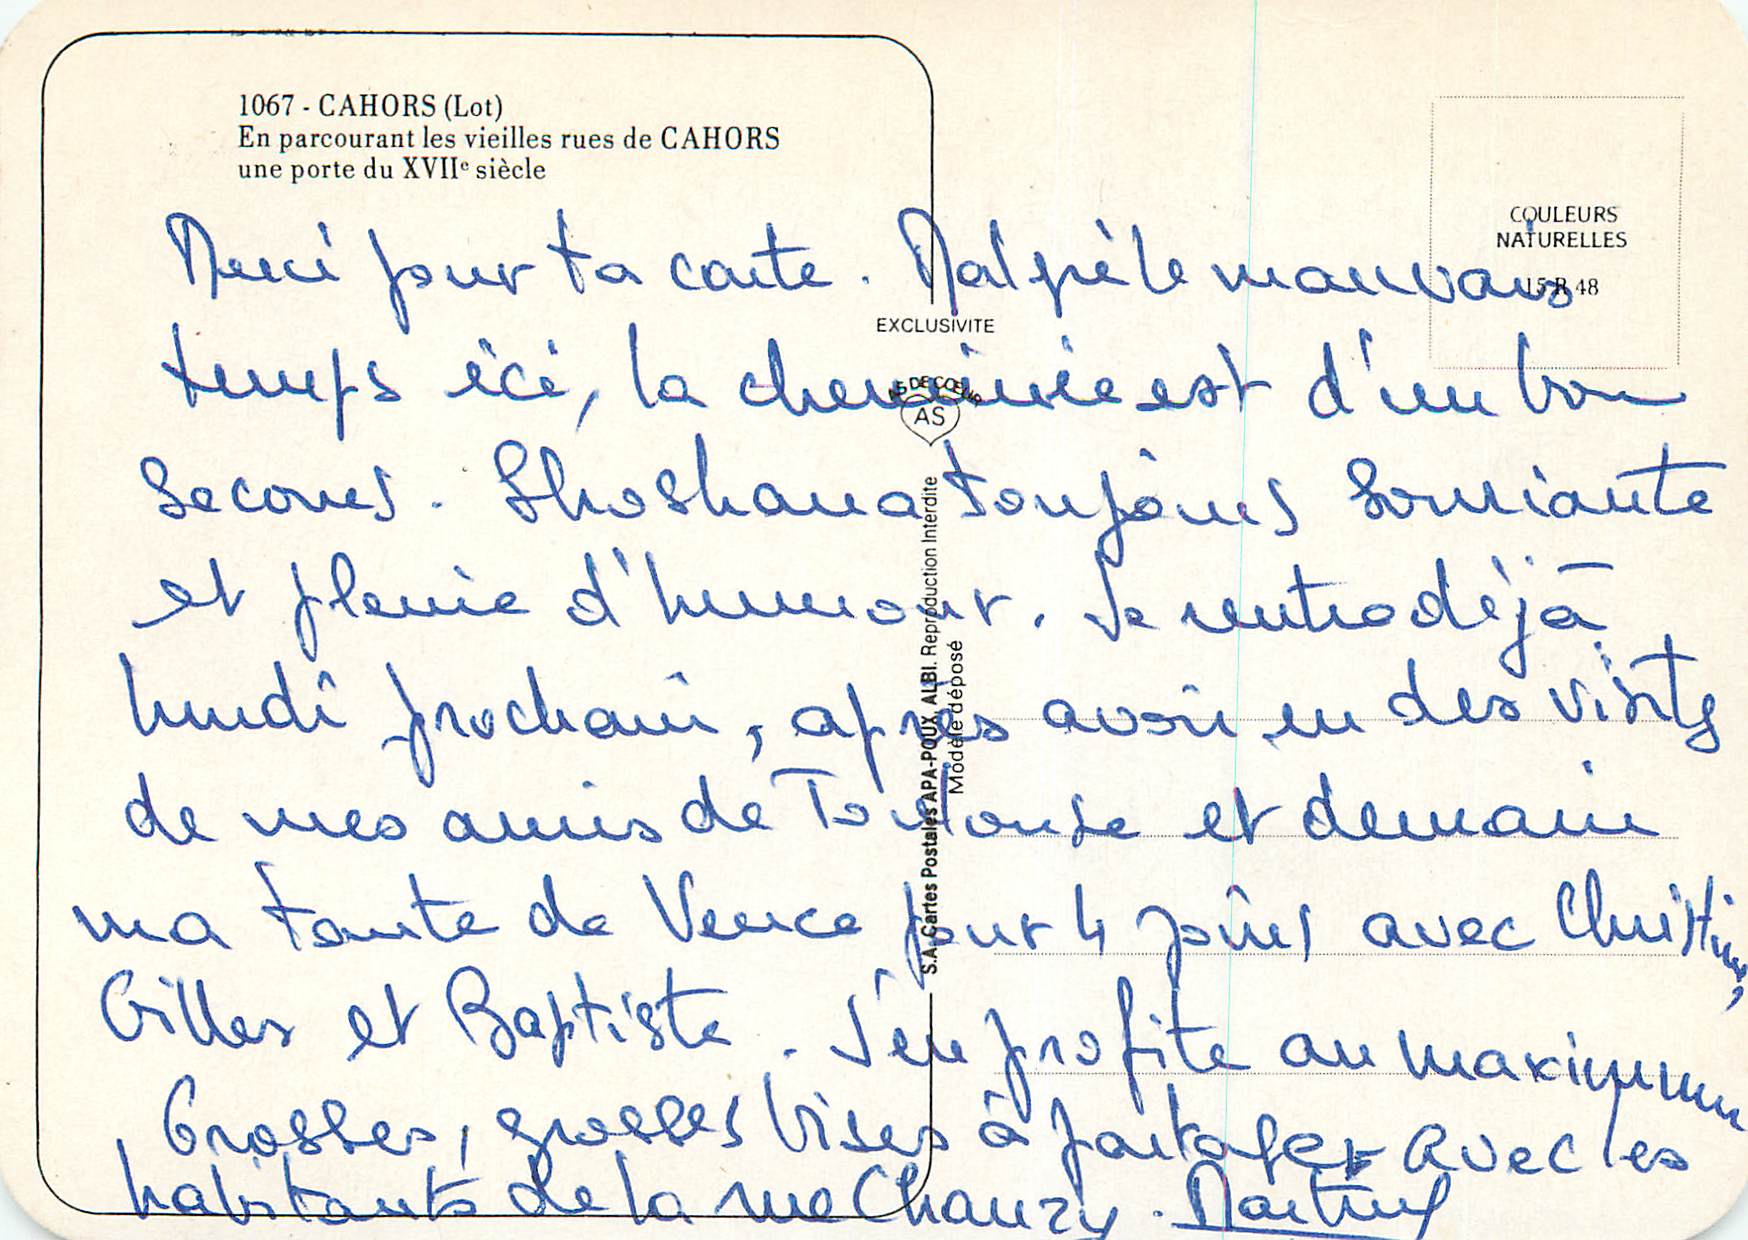 1067 - CAHORS (Lot)
En parcourant les vieilles rues de CAHORS
une porte du XVIIe siècle
COULEURS
NATURELLES
15 R 48
EXCLUSIVITE
AS DE COEUR
AS
S.A. Cartes Postales APA-POUX, ALBI. Reproduction Interdite
Modèle déposé
Merci pour ta carte. Malgré le mauvais
temps ici, la cheminée est d'un bon
secours. Shoshana toujours souriante
et pleine d'humour. Je rentre déjà
lundi prochain, après avoir eu des visites
de mes amis de Toulouse et demain
ma tante de Vence pour 4 jours avec Christine,
Gilles et Baptiste. J'en profite au maximum
Grosses, grosses bises à partager avec les
habitants de la rue Chanzy. Martine